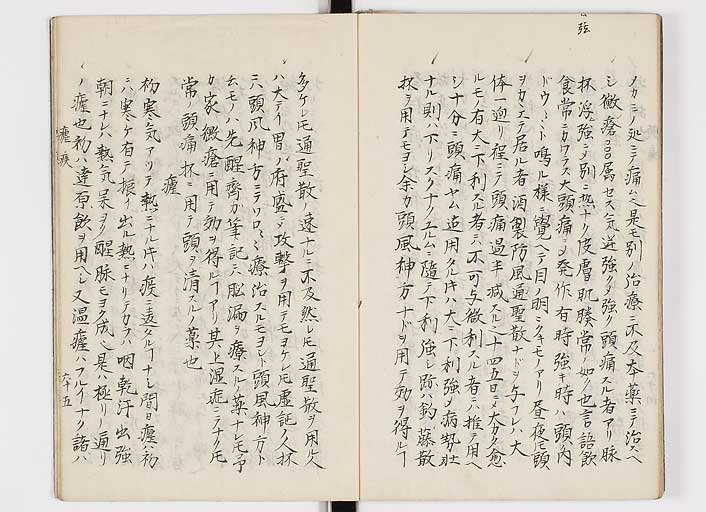 ノカミノ処ニテ痛ム是モ別ノ治療ニ不及本薬ニテ治スヘ
シ黴瘡ニ属セス気逆強クメ強ク頭痛スル者アリ脉
抔浮強ニメ別ニ熱ナク皮膚肌膜常ノ如ク也言語飲
食常ニカワラス大頭痛ニメ発作有時強キ時ハ頭ノ内
ドウ〻〻ト鳴ル様ニ覚ヘテ目ノ明ニクキモノアリ昼夜モ頭
ヲカヽエテ居ル者酒製防風通聖散ナドヲ与フレハ大
体一廻リ程ニテ頭痛過半減スル二十四五日ニテ大カタ愈
ルモノ有大ニ下利スル者ニ不可与微利スル者ニハ推テ用ヘ
シ十分ニ頭痛ヤム迄用クル片ハ大ニ下利強ク病勢壮
ナル則ハ下リスクナクユルムニ隨テ下利強シ跡ハ釣藤散
抔ヲ用テモヨシ余カ頭風神方ナドヲ用テ効ヲ得ルヿ
多ケレ𪜈通聖散ノ速ナルニ不及然レ𪜈通聖散ヲ用ル人
ハ大テイ胃ノ府盛ニメ攻撃ヲ用テモヨケレ𪜈虚証ノ人抔
ニハ頭風神方ニテソロ〻〻療治スルモヨシ頭風神方ト
云モノハ先醒斎カ筆記ニ脳漏ヲ療スルノ薬ナレ𪜈予
カ家黴瘡ニ用テ効ヲ得ルヿアリ其上湿症ニテナク𪜈
常ノ頭痛抔ニ用テ頭ヲ清スルノ薬也
瘧
初寒気アリテ熱ニナル片ハ痎ニ違タルヿナシ間日瘧ノ初
ニハ寒ケ有テ振イ出ル熱ニナリテカラハ咽乾汗出強
朝ニナレハ熱気呆ヲリ醒脉モヨク成ル是ハ極リノ通リ
ノ瘧也初ハ達原飲ヲ用ヘシ又温瘧ハフルイナク諸ハ
瘧疾
六十五
弦